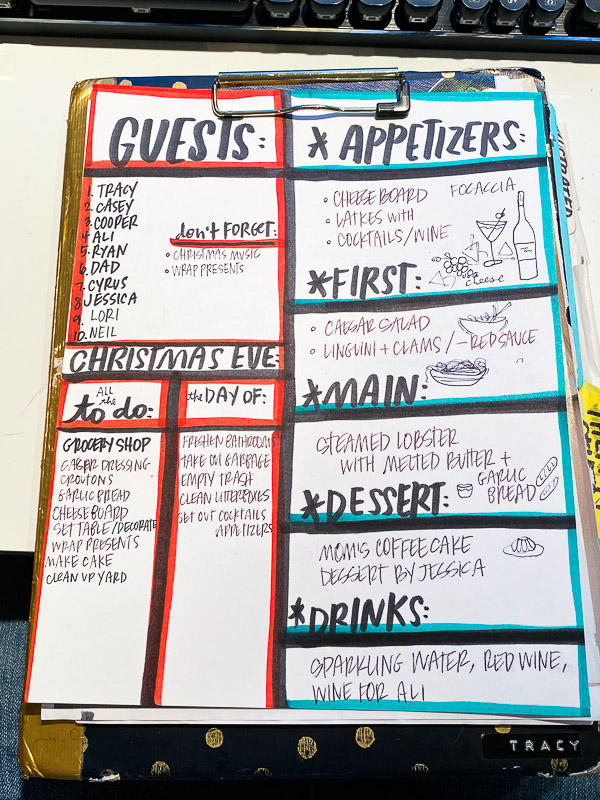 GUESTS:
1. TRACY
2. CASEY
3. COOPER
4. ALI
5. RYAN
6. DAD
7. CYRUS
8. JESSICA
9. LORI
10. NEIL
don't FORGET:
• CHRISTMAS MUSIC
• WRAP PRESENTS
CHRISTMAS EVE:
All the
to do:
GROCERY SHOP
CAESER DRESSING
CROUTONS
GARLIC BREAD
CHEESE BOARD
SET TABLE/DECORATE
WRAP PRESENTS
MAKE CAKE
CLEAN UP YARD
the DAY OF:
FRESHEN BATHROOMS
TAKE OUT GARBAGE
EMPTY TRASH
CLEAN LITTERBOXES
SET OUT COCKTAILS
APPETIZERS
* APPETIZERS:
• CHEESE BOARD FOCACCIA
• LATKES WITH
• COCKTAILS/WINE
cheese
*FIRST:
• CAESAR SALAD
• LINGUINI + CLAMS / – RED SAUCE
*MAIN:
STEAMED LOBSTER
WITH MELTED BUTTER +
GARLIC
BREAD
*DESSERT:
MOM'S COFFEE CAKE
DESSERT BY JESSICA
*DRINKS:
SPARKLING WATER, RED WINE,
WINE FOR ALI
TRACY